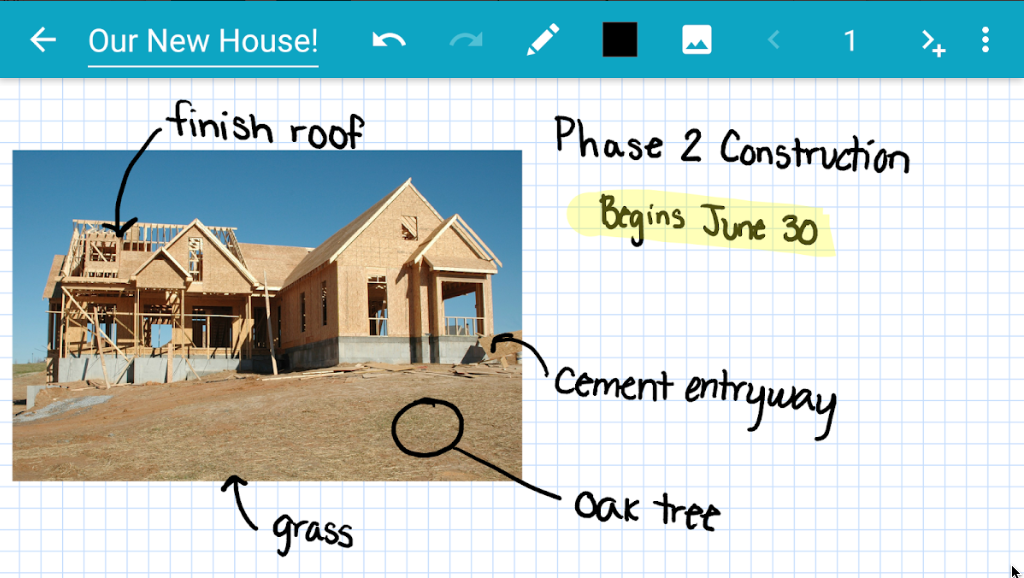 Our New House!
1
finish roof
Phase 2 Construction
Begins June 30
cement entryway
oak tree
grass